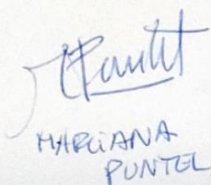 MARCIANA
PUNTEL